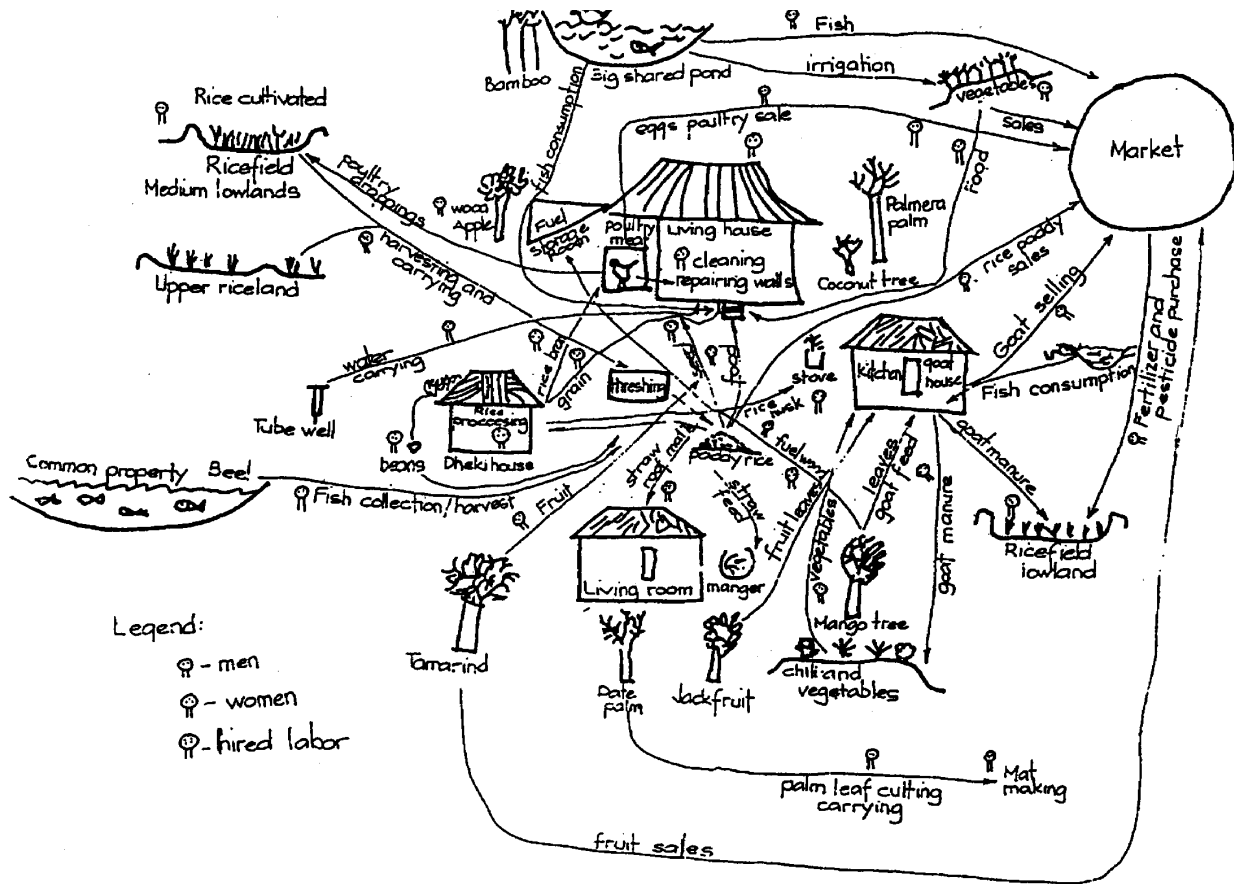 Fish
Bamboo
Big shared pond
irrigation
vegetables
sales
Rice cultivated
Ricefield
Medium lowlands
fish consumption
eggs poultry sale
food
Market
poultry
droppings
wood
Apple
Fuel
storage room
poultry
meat
Living house
cleaning
repairing walls
Palmera
palm
Coconut tree
rice paddy
sales
Upper riceland
harvesring and
carrying
Goat selling
Fertilizer and
pesticide purchase
water
carrying
rice bran
grain
threshing
food
stove
kitchen
goat
house
Fish consumption
Tube well
Rice
processing
Dheki house
beans
rice husk
paddy rice
straw
roof mat
fuelwood
leaves
goat feed
goat manure
goat manure
Common property Beel
Fish collection/harvest
Fruit
straw
feed
fruit leaves
vegetables
Ricefield
lowland
Living room
manger
Mango tree
Tamarind
Date
palm
Jackfruit
chili and
vegetables
Legend:
- men
- women
- hired labor
palm leaf cutting
carrying
Mat
making
fruit sales